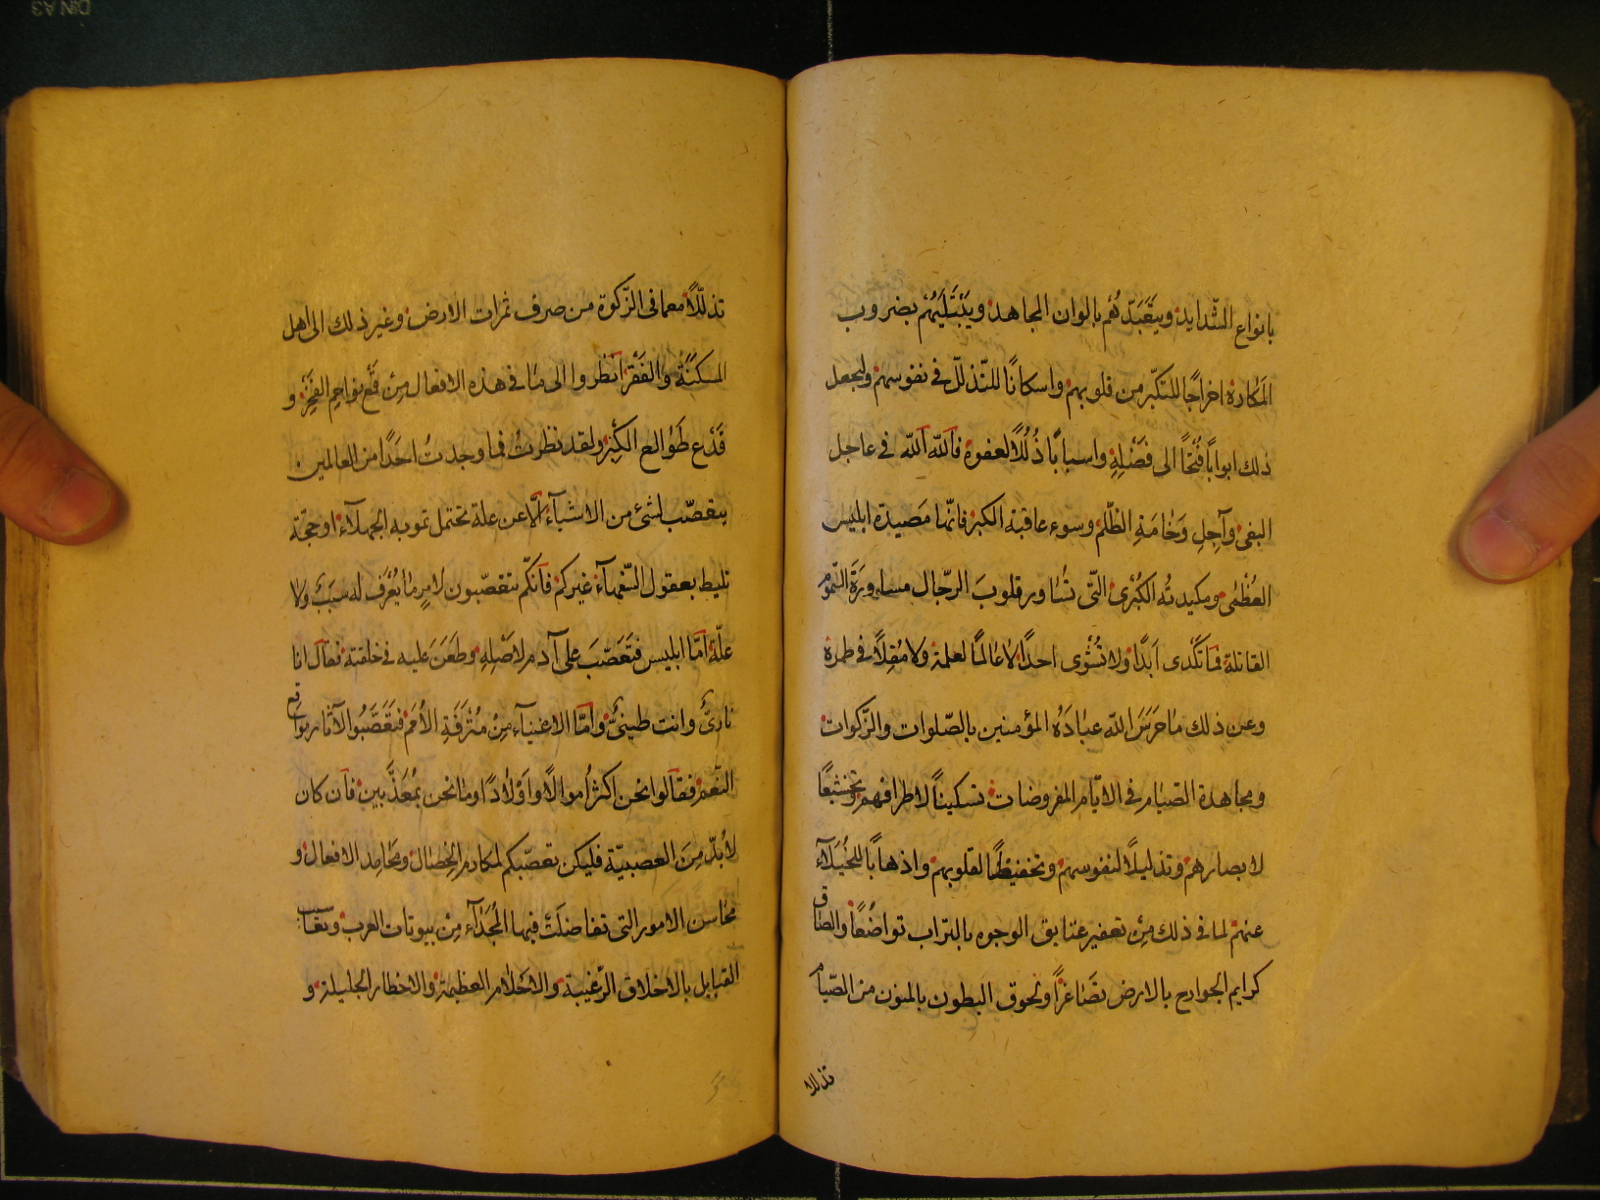 بانواع الشّدايد ويتعَبّدُهُم بالوان المجاهد ويَبْتَليهُم بضروب
المَكاره اخراجًا للتكبّر من قلوبهم واسكانًا للتّذلّل فى نفوسهم وليجعل
ذلك ابوابًا فُتُحًا الى فَضْلِهِ واسبابًا ذُلُلًا لعفوه فاللهَ اللهَ فى عاجل
البغى وآجِلِ وَخامَةِ الظّلم وسوء عاقبة الكبر فانّها مَصيدة ابليس
العُظْمى ومكيدتُه الكُبْرى الّتى تُساور قلوبَ الرّجال مساورَةَ السّموم
القاتلة فما تُكْدى اَبدًا ولا تُشْوى احدًا لا عالمًا لعلمه ولا مُقِلًّا فى طمره
وعن ذلك ما حَرَسَ الله عبادَهُ المؤمنين بالصّلوات والزّكوات
ومجاهدة الصّيام فى الايّام المفروضات تسكينًا لاطرافهم وتخشيعًا
لابصارهم وتذليلًا لنفوسهم وتخفيضًا لقلوبهم واذهابًا للخُيَلاء
عنهم لما فى ذلك مِنْ تعفير عتايق الوجوه بالتراب تواضُعًا والصاق
كرايم الجوارح بالارض تَصاغرًا ولحوق البطون بالمتون من الصّيام
تذللا
تذلّلًا مع ما فى الزّكوة من صرف ثمرات الارض وغير ذلك الى اهل
المسكنَةِ والفَقْر انظروا الى ما فى هذه الافعال مِنْ قَمْع نواجم الفَخْر و
قَدْع طَوالع الكِبْر ولقد نظرتُ فما وجدتُ احَدًا من العالمين
يتعصّب لشئ من الاشياء الّا عن علة تحتمل تمويه الجهلاء او حجّة
تليط بعقول السّفهاء غيركم فانكم تتعصّبون لامرٍ ما يُعْرَف له سبَبٌ ولا
علّة امّا ابليس فتَعَصّبَ على آدم لاصْلِهِ وطَعَنَ عليه فى خلقته فقال انا
نارىٌّ وانت طينىٌّ وامّا الاغنياء مِنْ مُتْرَفَةِ الأُمَم فتَعَصَّبُوا لآثار مواقع
النّعم فقالوا نحن اكثرُ اموالًا واَوْلادًا وما نحن بمُعَذَّبين فان كان
لابُدّ مِنَ العصبيّة فليكن تعصّبكم لمكارم الخِصال ومَحامِد الافعال و
محاسن الامور التى تفاضلَتْ فيها المُجَداء مِنْ بيوتات العرب ويعاسيب
القبايل بالاخلاق الرّغيبة والاحْلام العظيمة والاخطار الجليلة و